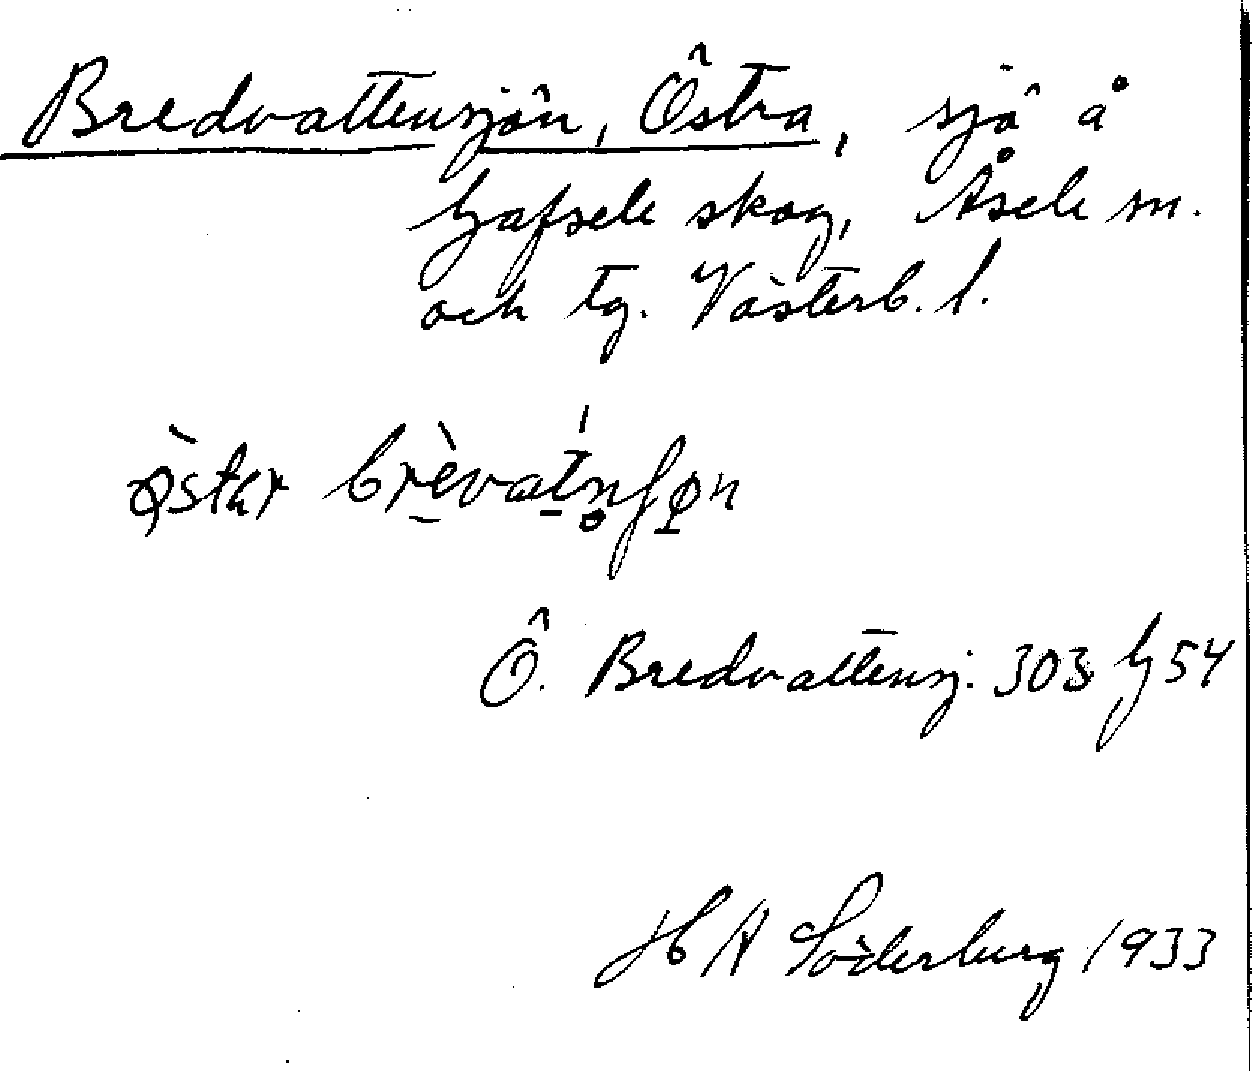 Bredvattensjön, Östra, sjö å
Gafsele skog, Åsele sn.
och tg. Västerb. l.
Ö. Bredvattensj. 303 G 54
H A Söderberg 1933